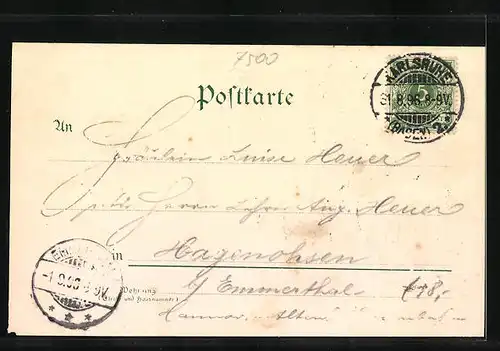 7500
Postkarte
KARLSRUHE
31.8.98.8-9V.
(BADEN) 2*
5
An
Fräulein Luise Heuer
Herrn Lehrer Aug. Heuer
in Hagenohsen
-1.9.98.8-9V.
Wohnung
(Straße und Hausnummer)
b/ Emmerthal
€18,-
Hannov.